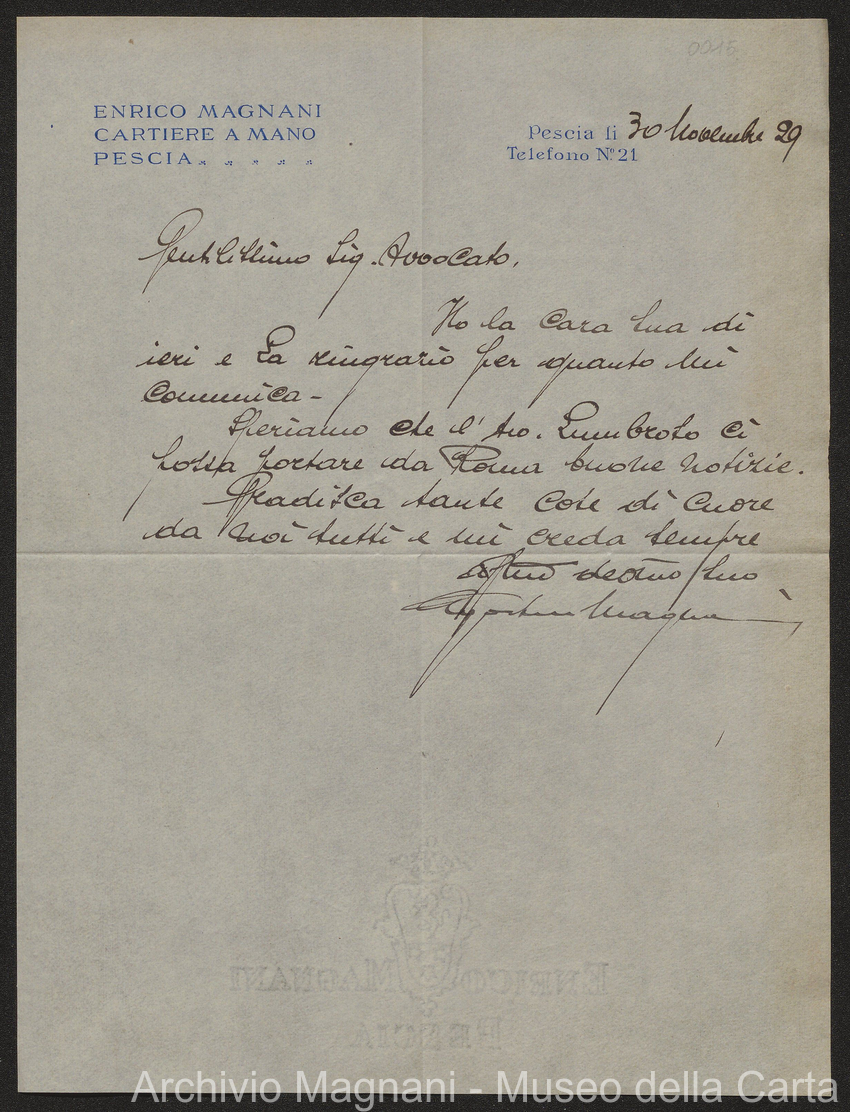 0015
ENRICO MAGNANI
CARTIERE A MANO
PESCIA
Pescia li 30 Novembre 29
Telefono N.º 21
Gentilissimo Sig. Avvocato,
Ho la cara sua di
ieri e La ringrazio per quanto mi
comunica -
Speriamo che l'Av. Lumbroso ci
possa portare da Roma buone notizie.
Gradisca tante cose di cuore
da noi tutti e mi creda sempre
suo
Magnani
ENRICO MAGNANI
PESCIA
Archivio Magnani - Museo della Carta